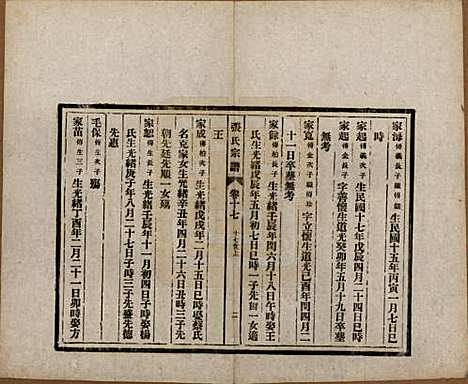 家海傳義長子繼傳鏡生民國十五年丙寅一月七日巳
時
家起傳義次子生民國十七年戊辰四月二十四日巳時
家起傳長子字善懷生道光癸卯年五月十九日卒墓
無考
家寬傳金次子繼傳字立懷生道光己酉年閏四月二
十一日卒墓無考
家餘傳柏長子生光緒壬辰年閏六月十八日午時娶王
氏生光緒戊辰年五月初七日巳時一子先一女適
張氏宗譜 卷十七 十七世上 二
王
家成傳柏次子生光緒戊戌年二月十五日巳時娶蔡氏
名克家女生光緒辛丑年四月二十六日丑時三子先
朝先廷先順一女鳳
家恕傳生長子生光緒壬辰年十一月初四日子時娶楊
氏生光緒庚子年八月二十七日子時三子先盛先德
先惠
毛保傳生次子殤
家苗傳生三子生光緒丁酉年二月二十一日卯時娶方